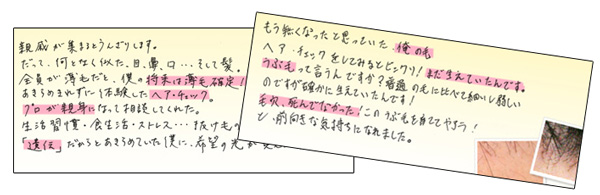 親戚が集まるとうんざりします。
だって、何となく似た、目、鼻、口…そして髪。
全員が薄毛だと、僕の将来は薄毛確定!
あきらめきれずに体験したヘア・チェック。
プロが親身になって相談してくれた。
生活習慣・食生活・ストレス…抜け毛の
「遺伝」だからとあきらめていた僕に、希望の光が
もう無くなったと思っていた俺の毛
ヘア・チェックをしてみるとビックリ!まだ生えていたんです。
うぶ毛って言うんですか?普通の毛に比べて細いし弱い
のですが確かに生えていたんです!
毛穴、死んでなかった!このうぶ毛を育ててやろう!
と、前向きな気持ちになれました。